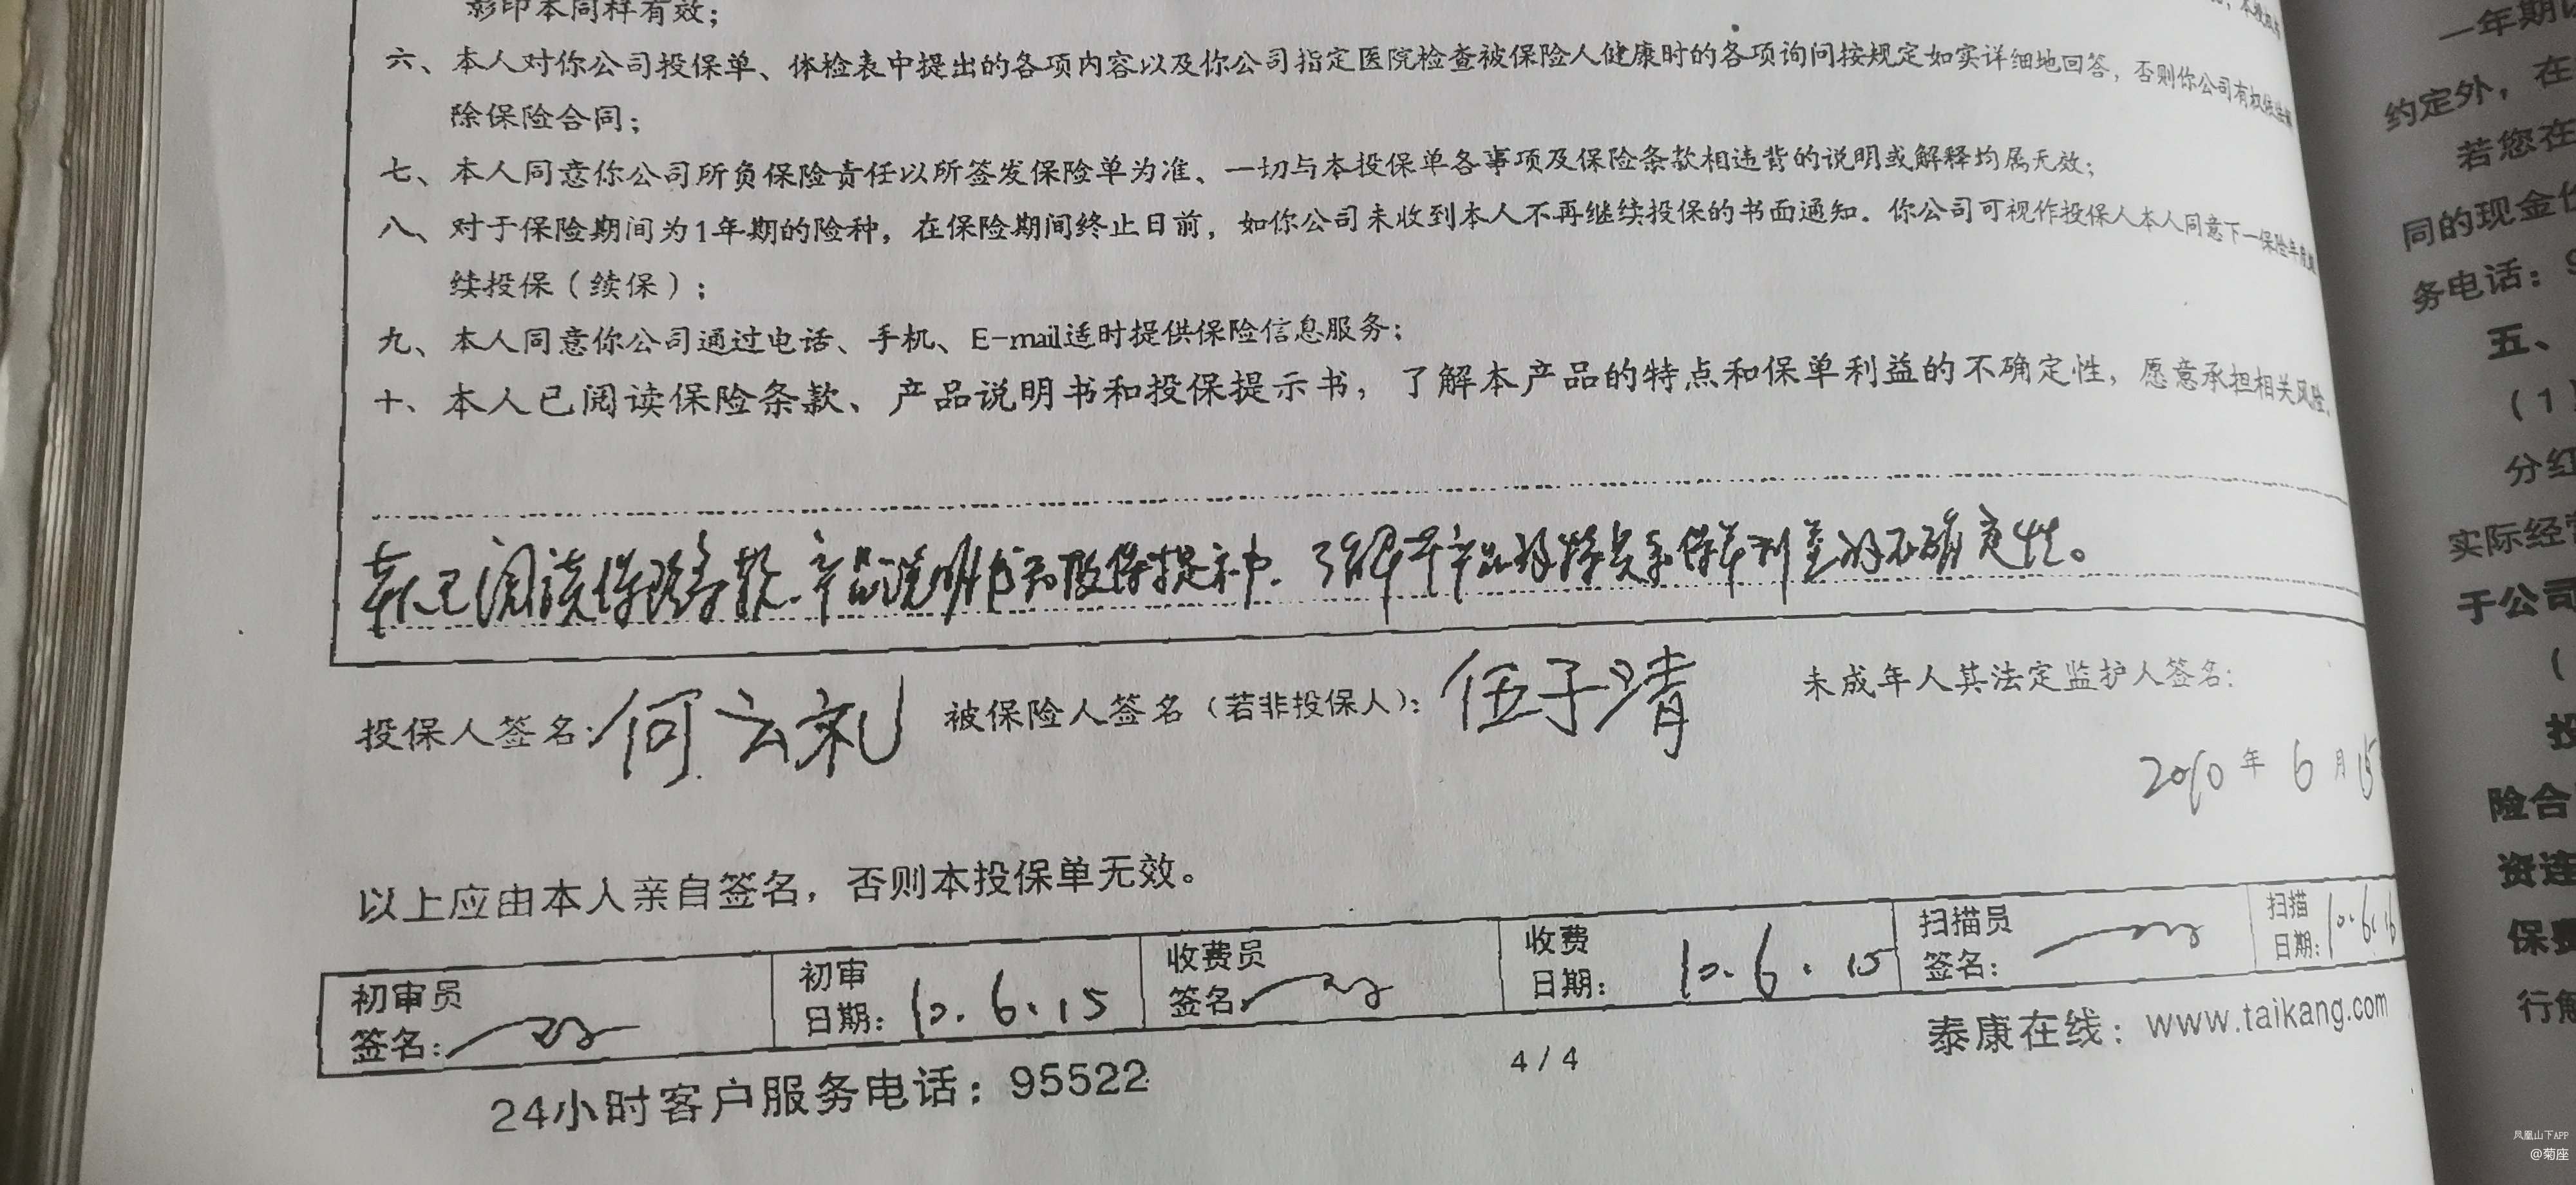 影印本同样有效；
六、本人对你公司投保单、体检表中提出的各项内容以及你公司指定医院检查被保险人健康时的各项询问按规定如实详细地回答，否则你公司有权依法解
除保险合同；
七、本人同意你公司所负保险责任以所签发保险单为准、一切与本投保单各事项及保险条款相违背的说明或解释均属无效；
八、对于保险期间为1年期的险种，在保险期间终止日前，如你公司未收到本人不再继续投保的书面通知。你公司可视作投保人本人同意下一保险年度
续投保（续保）；
九、本人同意你公司通过电话、手机、E-mail适时提供保险信息服务；
十、本人已阅读保险条款、产品说明书和投保提示书，了解本产品的特点和保单利益的不确定性，愿意承担相关风险。
本人已阅读保险条款、产品说明书和投保提示书、了解本产品的特点和保单利益的不确定性。
投保人签名：何云礼 被保险人签名（若非投保人）：伍子清 未成年人其法定监护人签名：
2010年6月15
以上应由本人亲自签名，否则本投保单无效。
初审员签名： 初审日期：10.6.15 收费员签名： 收费日期：10.6.15 扫描员签名： 扫描日期：10.6.16
泰康在线：www.taikang.com
4/4
24小时客户服务电话：95522
一年期
约定外，在
若您在
同的现金
务电话：9
五、
（1）
分红
实际经营
于公司
（
投
险合
资连
保费
行解
凤凰山下APP
@菊座